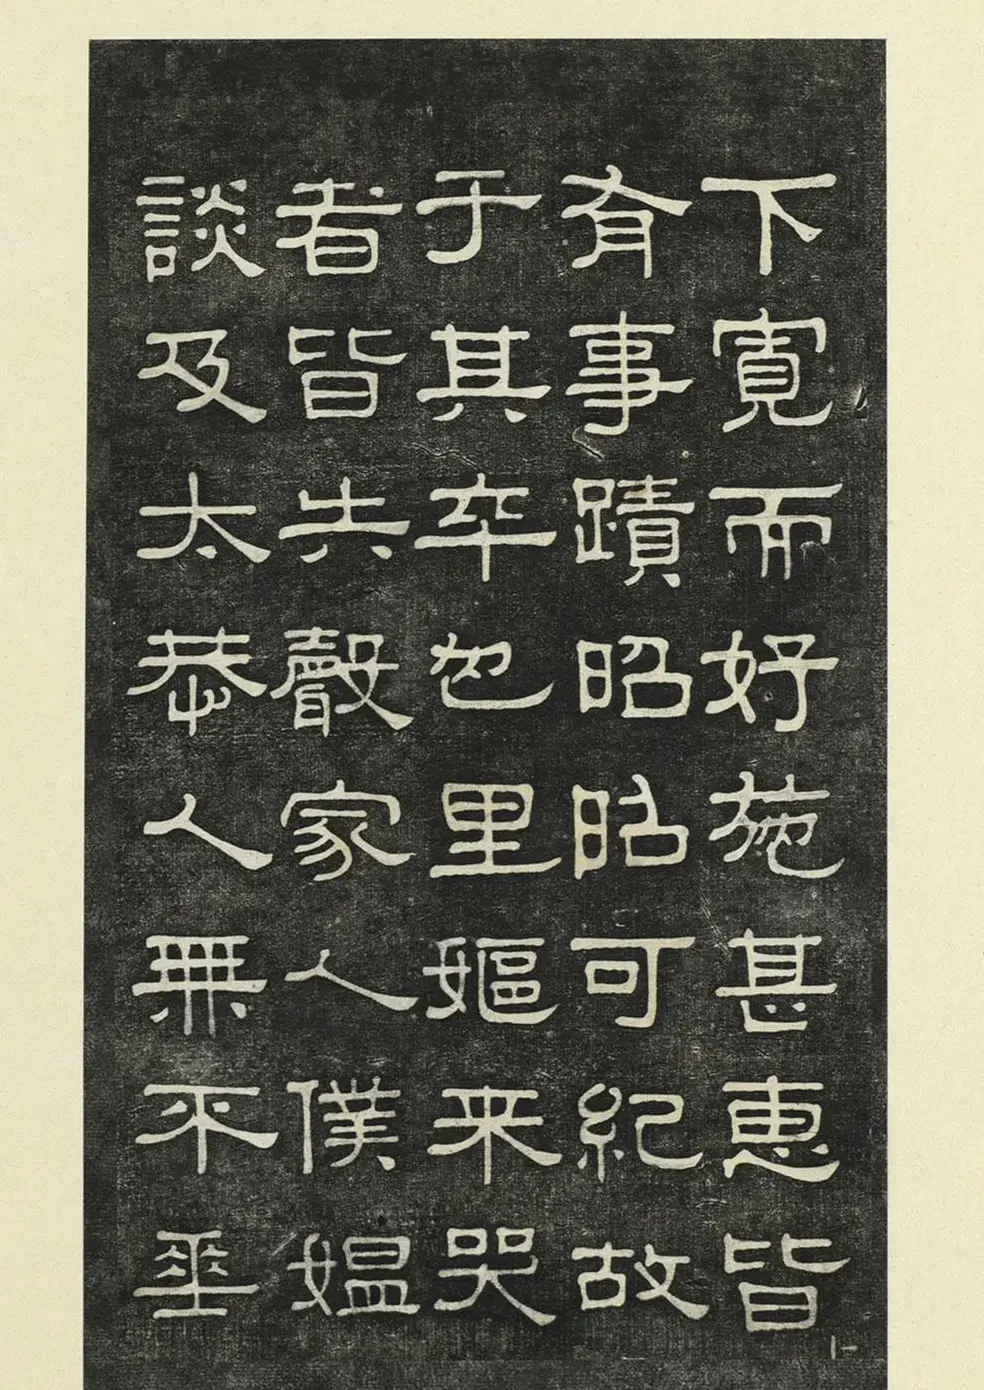 下寬而好施甚惠皆
有事蹟昭昭可紀故
于其卒也里嫗来哭
者皆失聲家人僕媼
談及太恭人無不垂